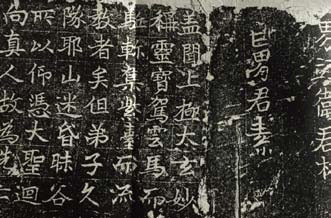 亡男君素
盖聞上極大玄妙
稱靈寶駕雲馬而
軒集紫素而流
教者矣但弟子久
隊耶山迷昏昧谷
所以仰憑大聖迴
向真人故為